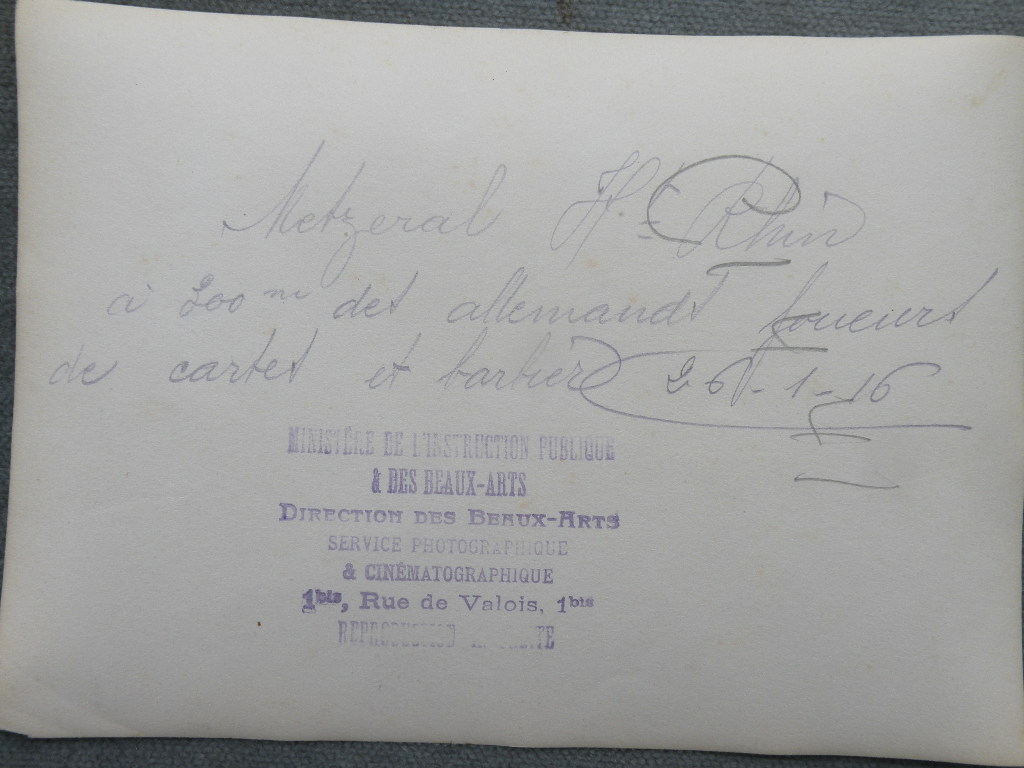 Metzeral Ht Rhin
à 200m des allemands joueurs
de cartes et barbier 26-1-16
MINISTÈRE DE L'INSTRUCTION PUBLIQUE
& DES BEAUX-ARTS
DIRECTION DES BEAUX-ARTS
SERVICE PHOTOGRAPHIQUE
& CINÉMATOGRAPHIQUE
1bis, Rue de Valois, 1bis
REPRODUCTION INTERDITE